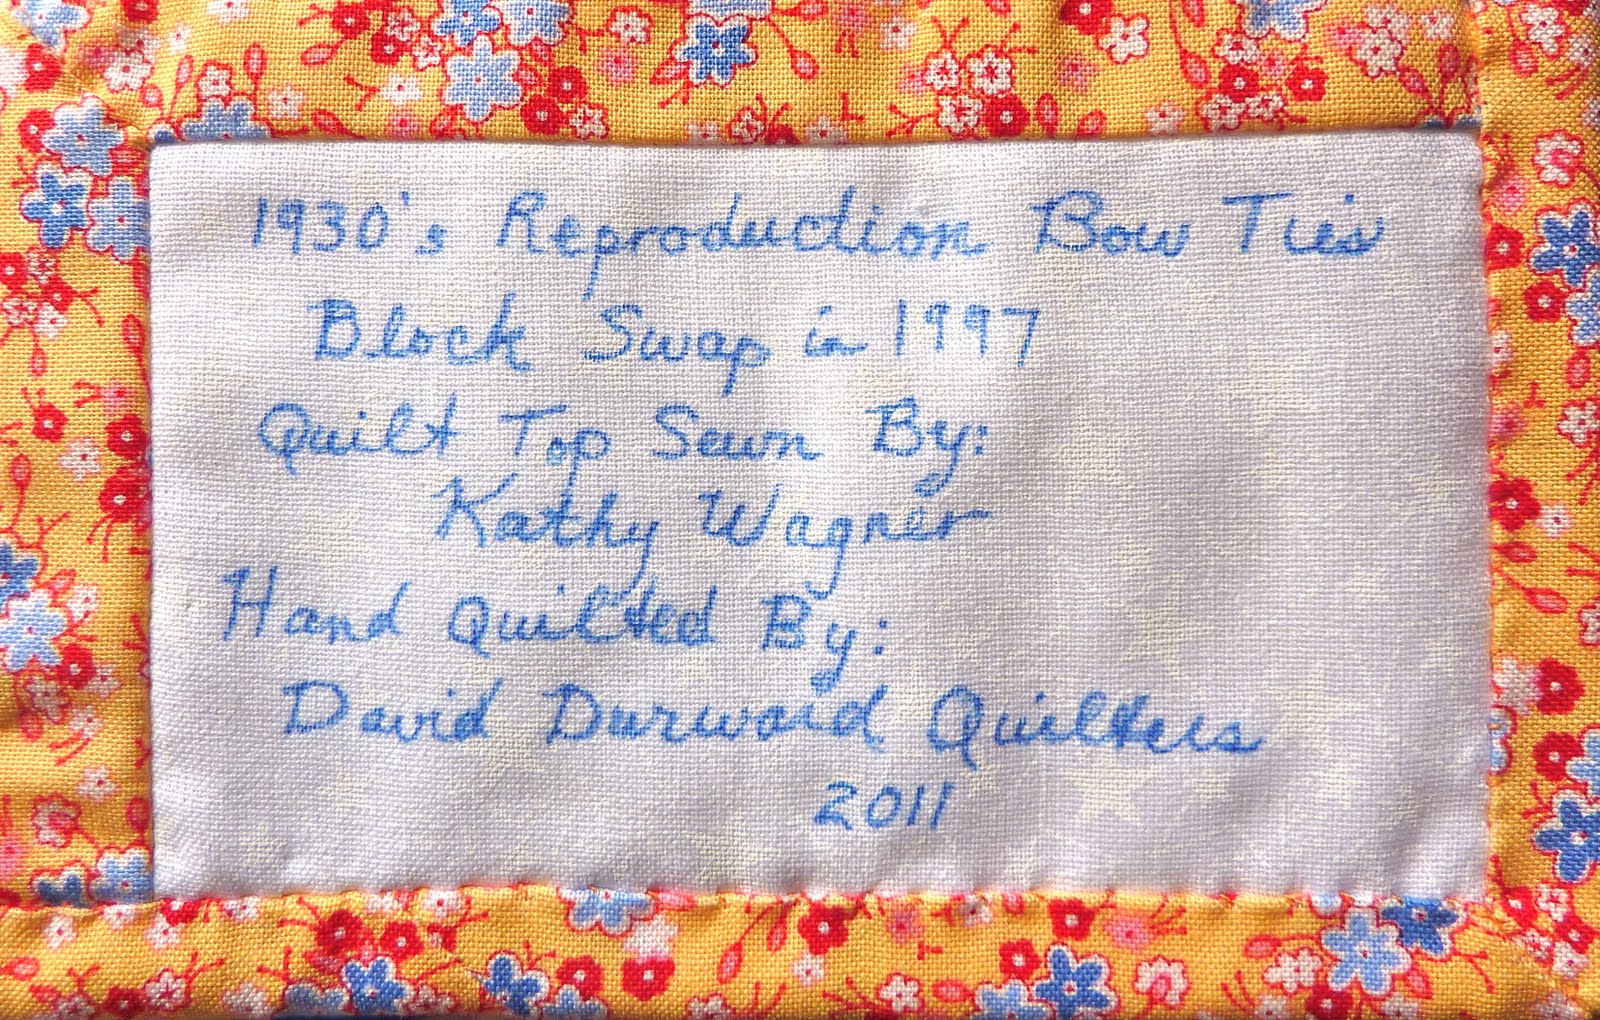 1930's Reproduction Bow Ties
Block Swap in 1997
Quilt Top Sewn By:
Kathy Wagner
Hand Quilted By:
David Durward Quilters
2011